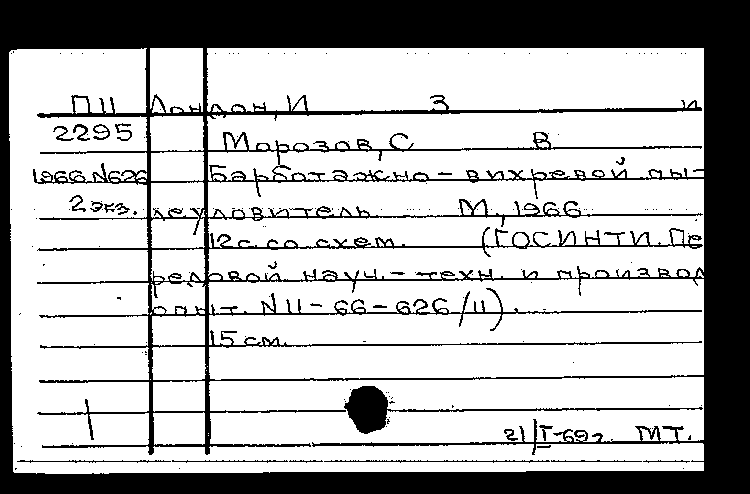 П11 Лондон, И З и
2295 Морозов, С В
1966 N626 Барботажно-вихревой пы-
2 экз. леуловитель М., 1966
12 с. со схем. (ГОСИНТИ. Пе
редовой науч.-техн. и производ
опыт. N11-66-626/11).
15 см.
21/I-69г. МТ.